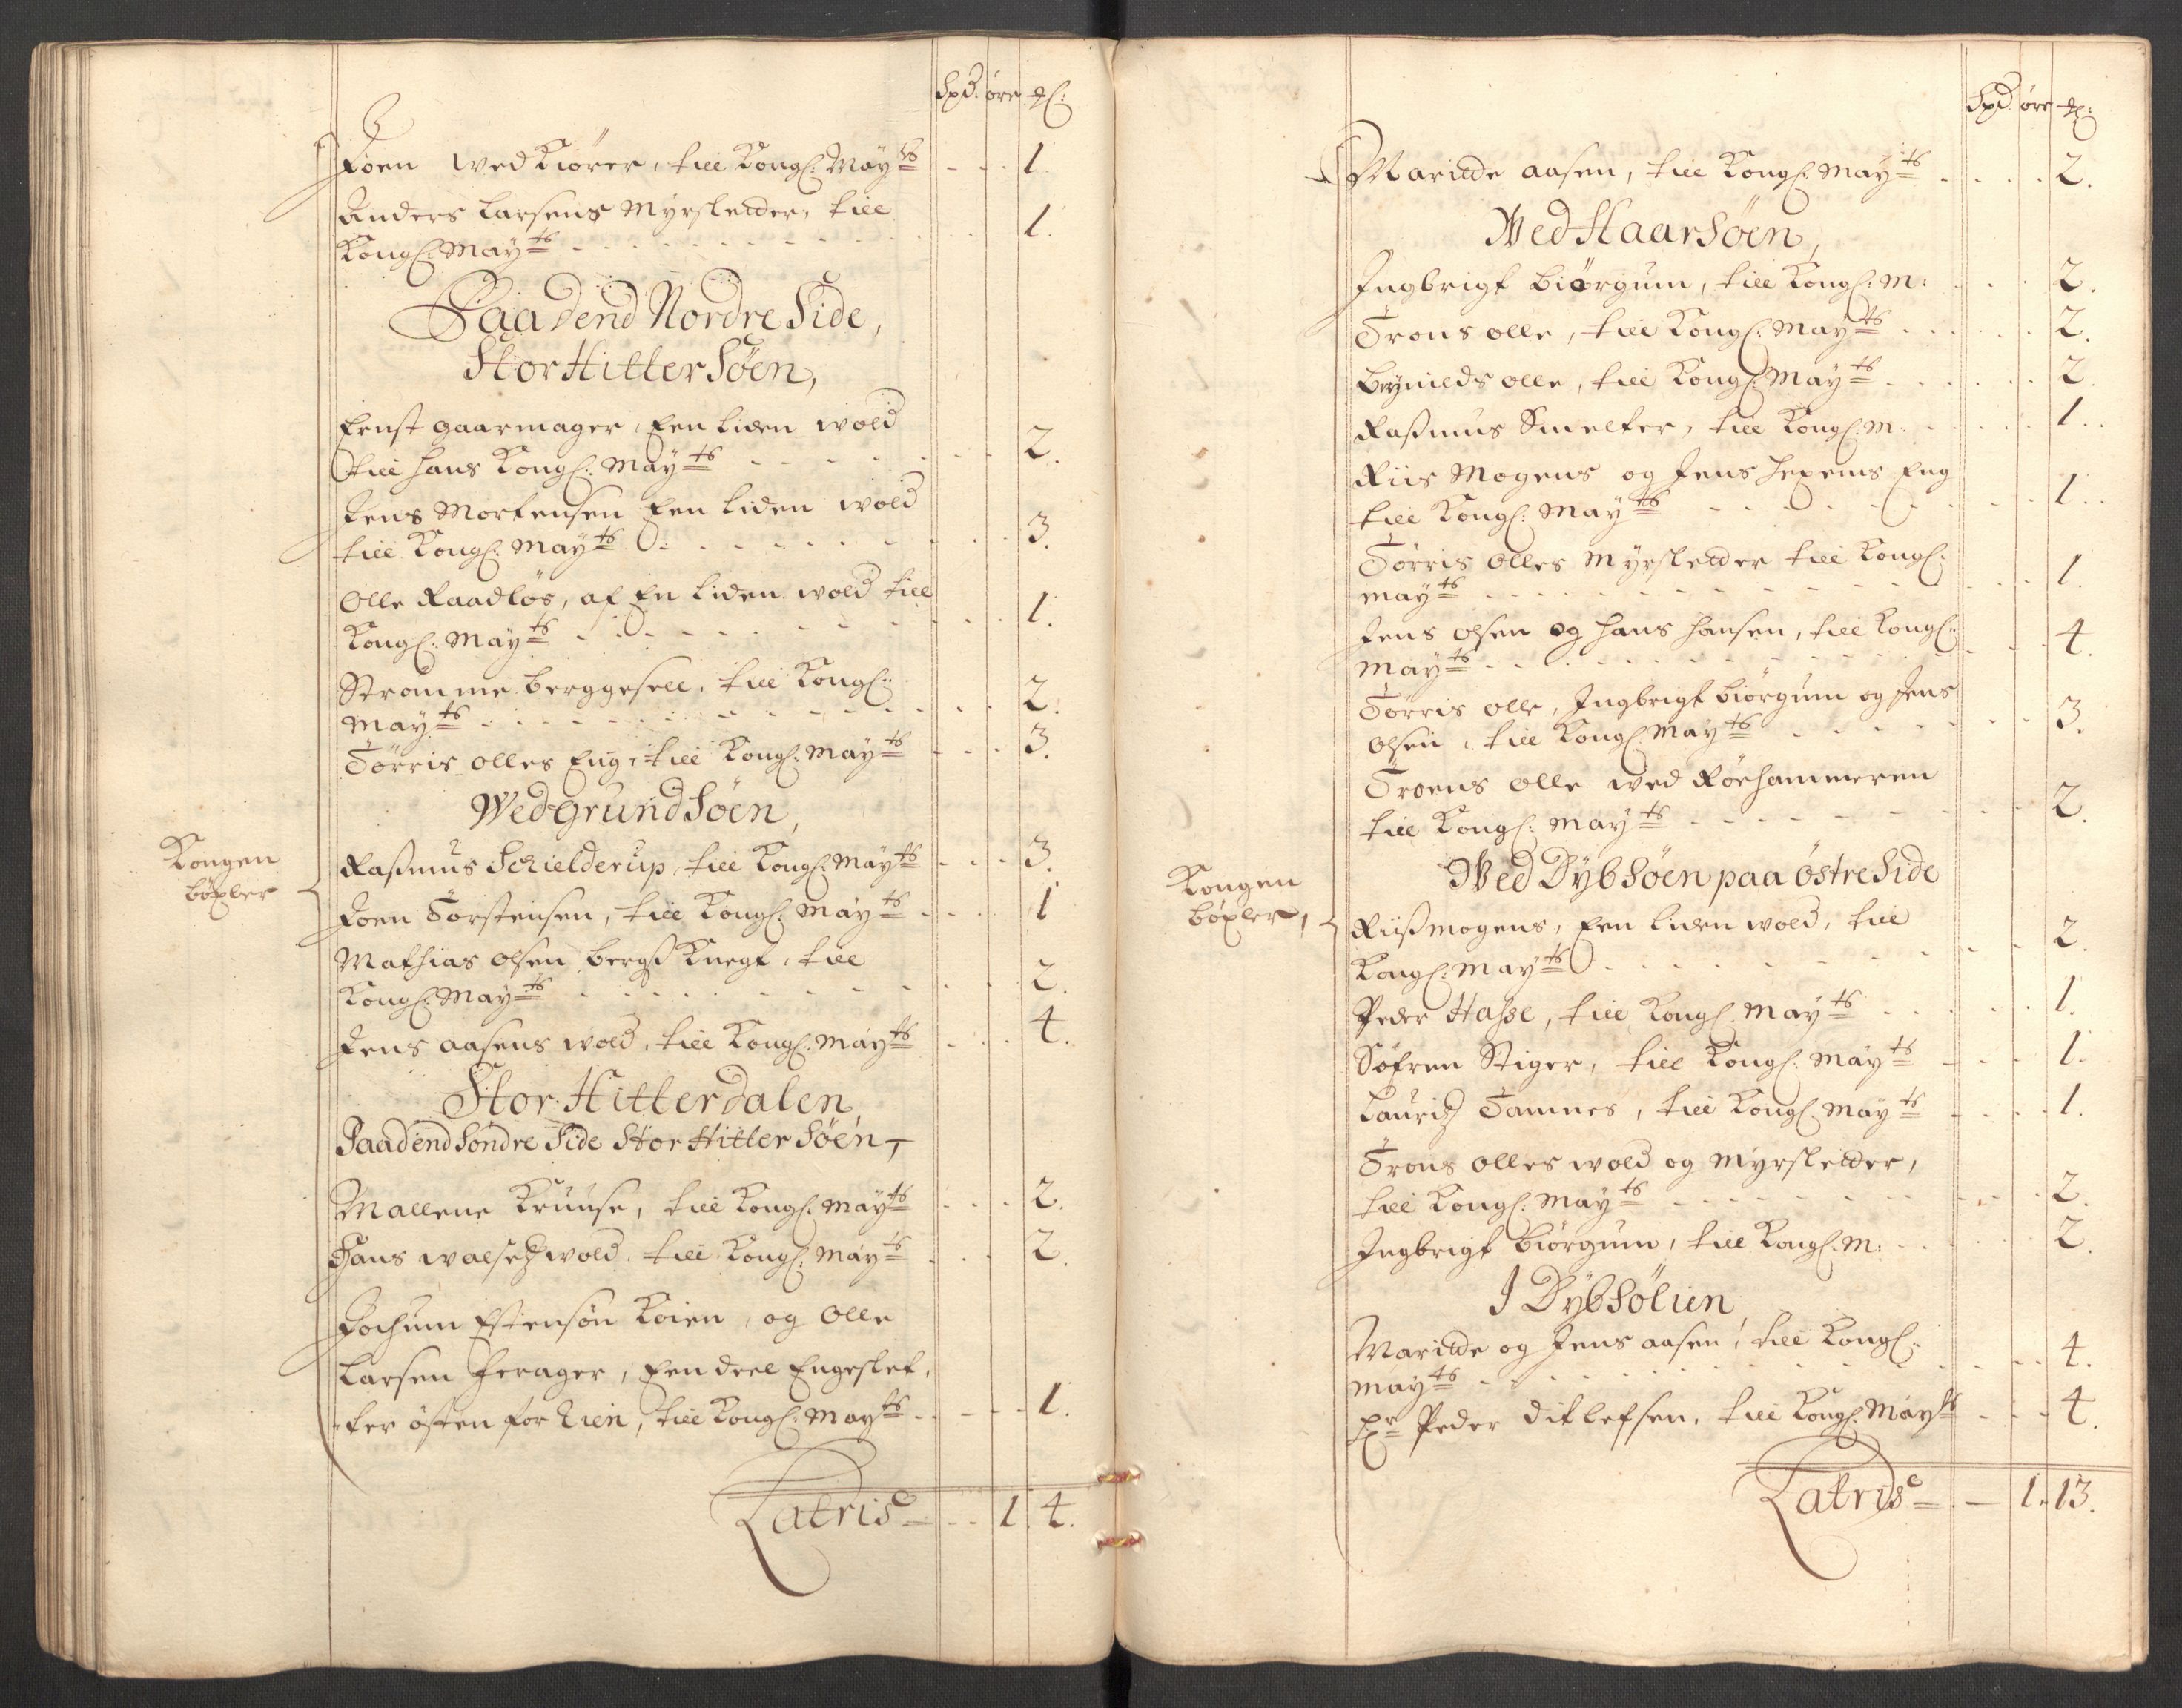 Spd. øre
Joen wed Kiörer, till Kongl: Mayts - - - 1.
Anders Larsens Myrsletter, till
Kongl: Mayts - - - 1.
Paa dend Nordre Side,
Stor Hitter Söen,
Ernst gaarmager, Een liden wold
till hans Kongl: Mayts - - - 2.
Jens Mortensen Een liden wold
till Kongl: Mayts - - - 3.
Olle Raadløs, af En liden wold till
Kongl: Mayts - - - 1.
Stromme berggesell, till Kongl:
Mayts - - - 2.
Törris olles Eng, till Kongl: Mayts - - - 3.
Wed Grund Söen,
Kongen
böxler
Rasmus Schielderup, till Kongl: Mayts - - - 3.
Joen Torstensen, till Kongl: Mayts - - - 1
Mathias olsen bergs Knegt, till
Kongl: Mayts - - - 2.
Jens aasens wold, till Kongl: Mayts - - - 4.
Stor Hitterdalen,
Paa dend Söndre Side Stor Hitter Söen,
Mallene Kruuse, till Kongl: Mayts - - - 2.
Hans wold, till Kongl: Mayts - - - 2.
Jochum Estensøn Koien, og olle
Larsen, Een deel Engeslet,
ter østen for Lien, till Kongl: Mayts - - - 1.
Latris - - 1. 4.
Spd. øre
Maritte aasen, till Kongl: Mayts - - - 2.
Wed Haarsöen,
Ingbrigt biörgum, till Kongl: M: - - - 2.
Trons olle, till Kongl: Mayts - - - 2.
Brynilds olle, till Kongl: Mayts - - - 2.
Rasmus Smelter, till Kongl: M: - - - 1.
Riis Mogens og Jens Eng
till Kongl: Mayts - - - 1.
Törris olles Myrsletter till Kongl:
mayts - - - 1.
Jens olsen og hans hansen, till Kongl:
Mayts - - - 4.
Törris olle, Ingbrigt biörgum og Jens
olsen, till Kongl: Mayts - - - 3.
Troens olle wed Röehammeren
till Kongl: Mayts - - - 2.
Wed Dybsöen paa östre Side
Kongen
böxler,
Riis mogens, Een liden wold, till
Kongl: Mayts - - - 2.
Peder Hasse, till Kongl: Mayts - - - 1.
Söfren Stiger, till Kongl: Mayts - - - 1.
Lauritz Tamnes, till Kongl: Mayts - - - 1.
Trons olles wold og Myrsletter,
till Kongl: Mayts - - - 2.
Ingbrigt biörgum, till Kongl: M: - - - 2.
I Dybsölien
Maritte og Jens aasen, till Kongl:
Mayts - - - 4.
Hr Peder Ditlefsen, till Kongl: Mayts - - - 4.
Latris - - 1. 13.